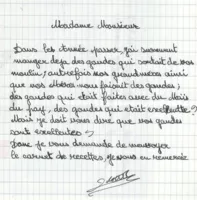 Madame Monsieur
Dans les année passer, j'ai souvent
manger deja des gaudes qui sortait de vos
moulin; autrefois nos grandmères ainsi
que nos Mères nous faisait des gaudes;
des gaudes qui était faites avec du Maïs
du pays, des gaudes qui était excellente.
Mais je doit vous dire que vos gaudes
sont excellentes.
Donc je vous demande de m'envoyer
le carnet de recettes, je vous en remercie